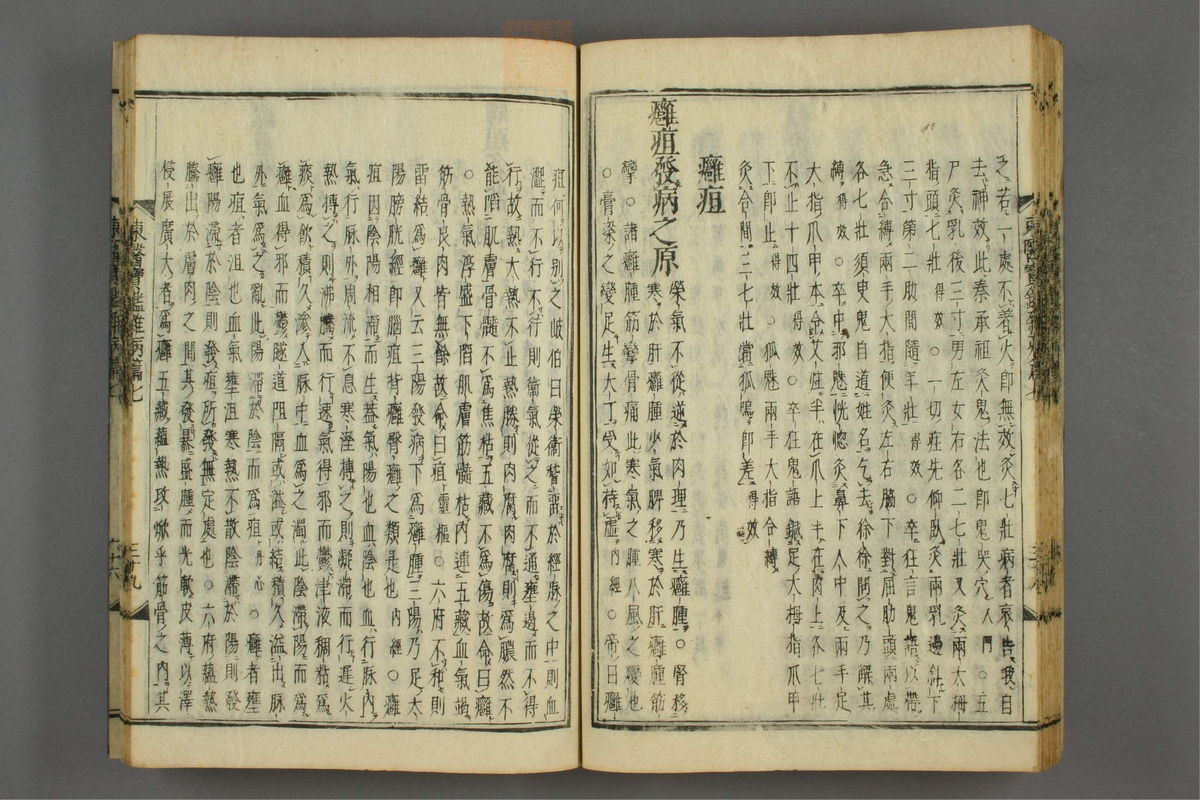 之若一處不著火卽無效灸七壯病者哀告我自
去神效此秦承祖灸鬼法也卽鬼哭穴入門○五
尸灸乳後三寸男左女右各二七壯又灸兩大拇
指頭七壯得效○一切疰先仰臥灸兩乳邊斜下
三寸第二肋間隨年壯得效○卒狂言鬼語以帶
急合縛兩手大指便灸左右脇下對屈肋頭兩處
各七壯須臾鬼自道姓名乞去徐徐問之乃解其
縛得效○卒中邪魅恍惚灸鼻下人中及兩手足
大指爪甲本令艾炷半在爪上半在肉上各七壯
不止十四壯得效○卒狂鬼語鍼足大拇指爪甲
下卽止得效○狐魅兩手大指合縛
灸合間三七壯當狐鳴卽差得效
癰疽
癰疽發病之原
榮氣不從逆於肉理乃生癰腫○腎移
寒於肝癰腫少氣脾移寒於肝癰腫筋
攣○諸癰腫筋攣骨痛此寒氣之腫八風之變也
○膏粱之變足生大丁受如持虛內經○帝曰癰
疽何以別之岐伯曰榮衛稽留於經脉之中則血
澀而不行不行則衛氣從之而不通壅遏而不得
行故熱大熱不止熱勝則肉腐肉腐則爲膿然不
能陷肌膚骨髓不爲焦枯五藏不爲傷故命曰癰
○熱氣淳盛下陷肌膚筋髓枯內連五藏血氣竭
筋骨良肉皆無餘故命曰疽靈樞○六府不和則
留結爲癰又云三陽發病下爲癰腫三陽乃足太
陽膀胱經卽腦疽背癰臀癰之類是也內經○癰
疽因陰陽相滯而生盖氣陽也血陰也血行脉內
氣行脉外周流不息寒濕搏之則凝滯而行遲火
熱搏之則沸騰而行速氣得邪而鬱津液稠粘爲
痰爲飮積久滲入脉中血爲之濁此陰滯陽而爲
癰血得邪而鬱隧道阻隔或溢或結積久溢出脉
外氣爲之亂此陽滯於陰而爲疽丹心○癰者壅
也疽者沮也血氣壅沮寒熱不散陰滯於陽則發
癰陽滯於陰則發疽所發無定處也○六府蘊熱
騰出於膚肉之間其發暴盛腫而光軟皮薄以澤
侵展廣大者爲癰五藏蘊熱攻焮乎筋骨之內其
東醫寶鑑雜病篇七
三十九